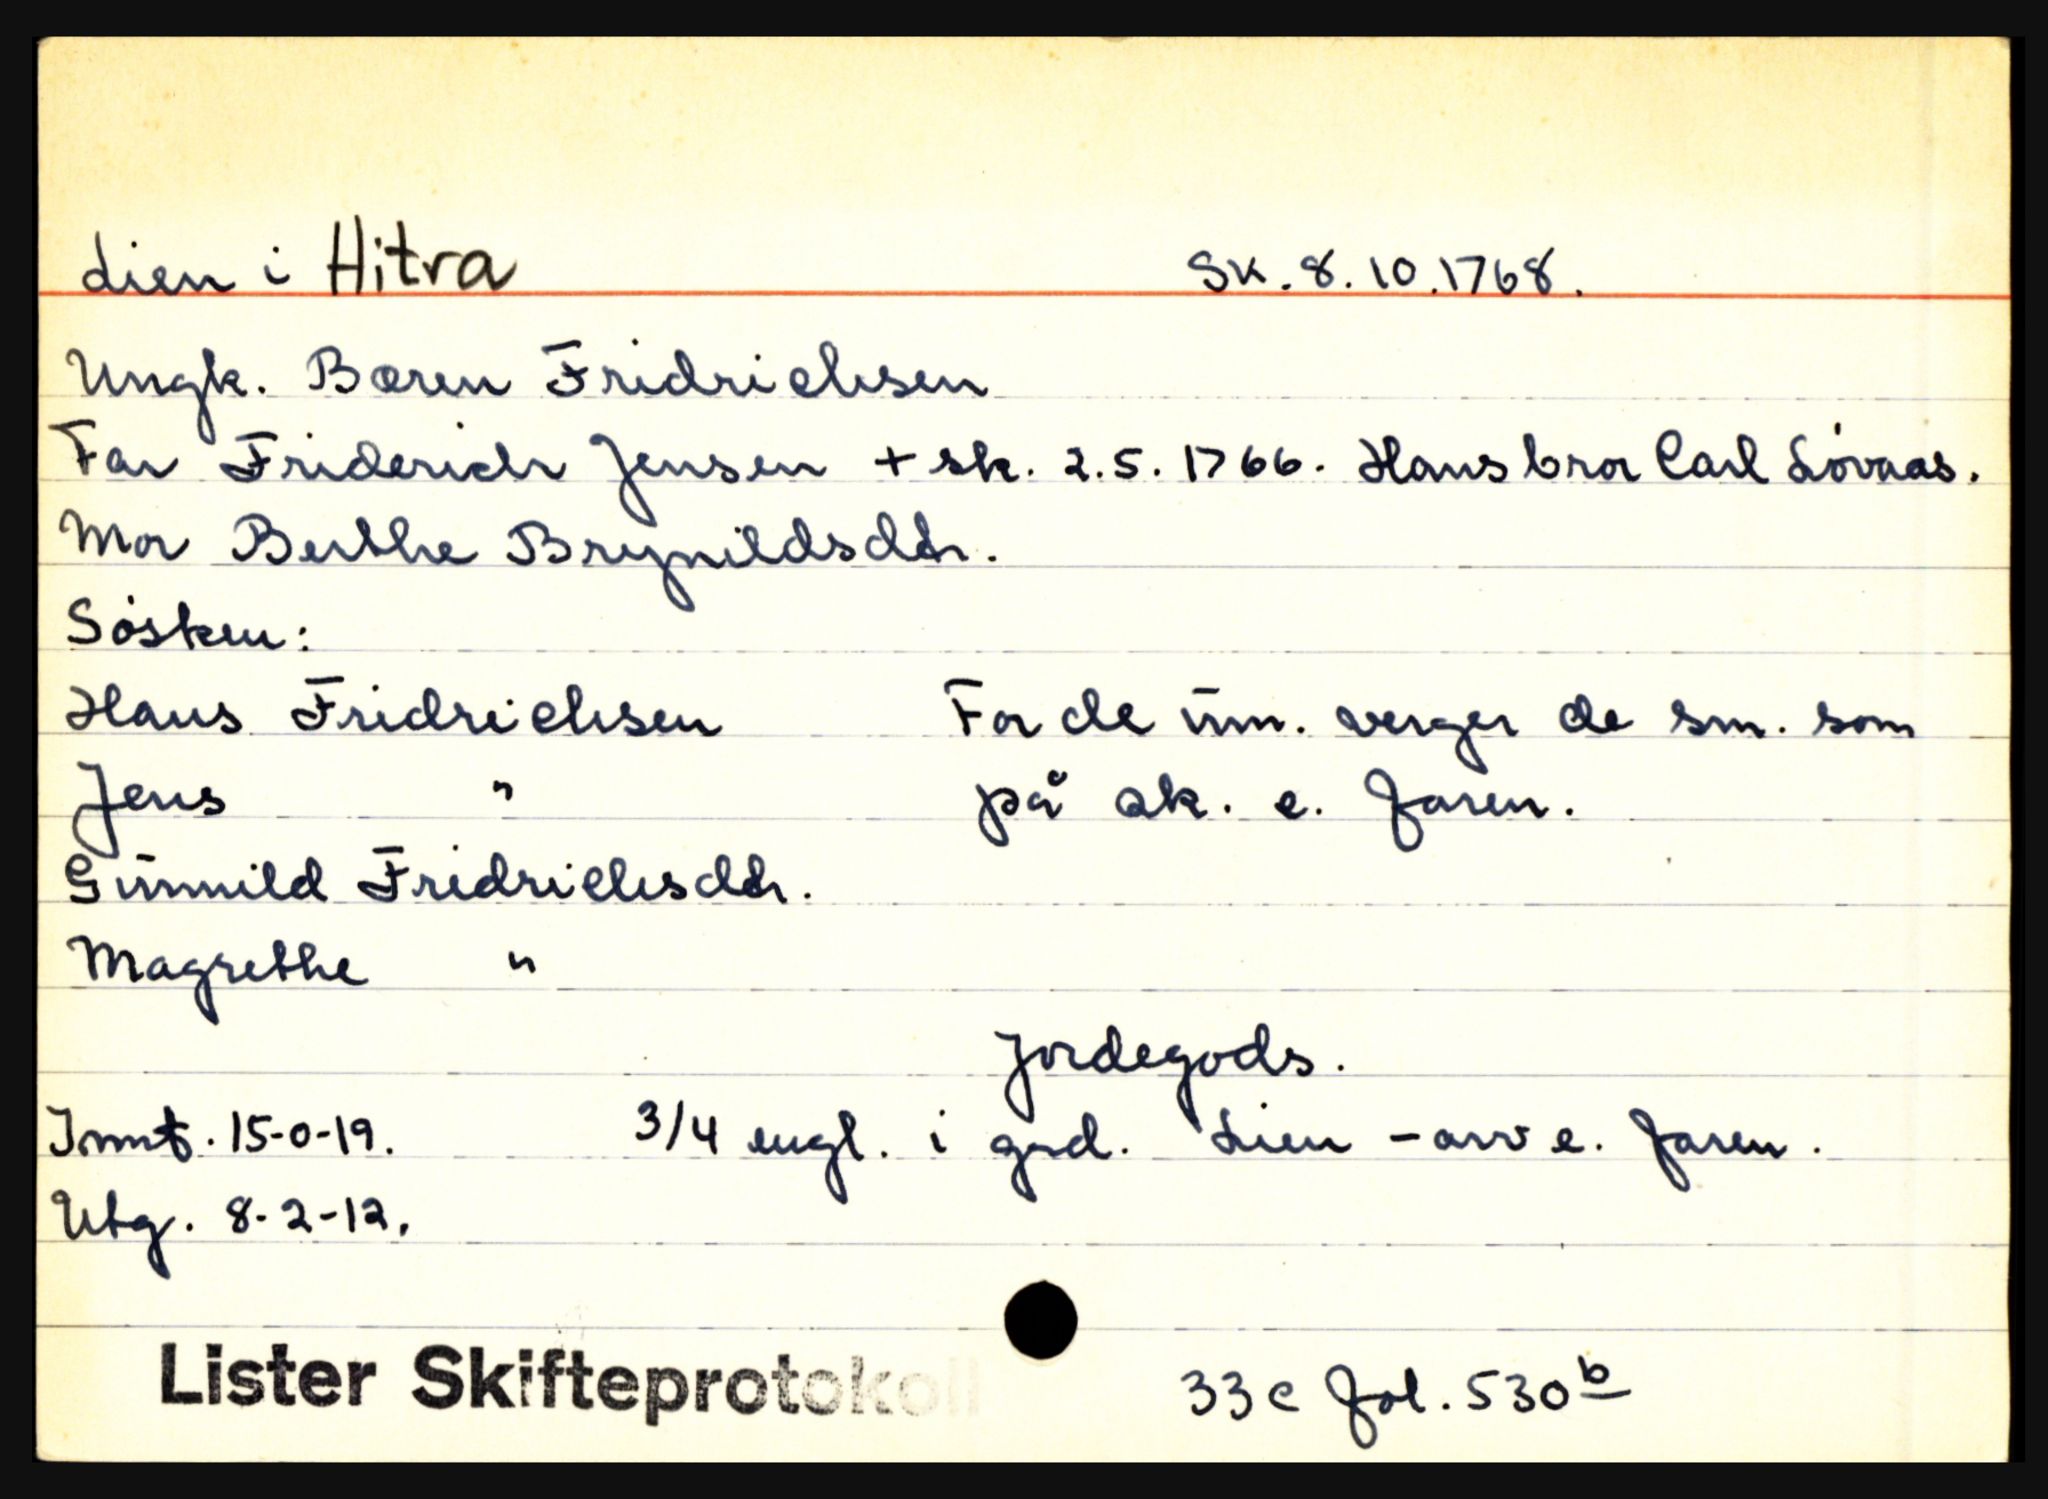 Lien i Hitra Sk. 8.10.1768.
Ungk. Boren Fridrichsen
Far Friderich Jensen + sk. 2.5.1766. Hans bror Carl Lovaas.
Mor Berthe Brynildsdtr.
Søsken:
Hans Fridrichsen For de um. verger de sm. som
Jens " på sk. e. faren.
Gunnild Fridrichsdtr.
Magrethe "
Jordegods.
Innt. 15-0-19. 3/4 engl. i grd. Lien - arv e. faren.
Utg. 8-2-12.
Lister Skifteprotokoll 33c fol. 530b